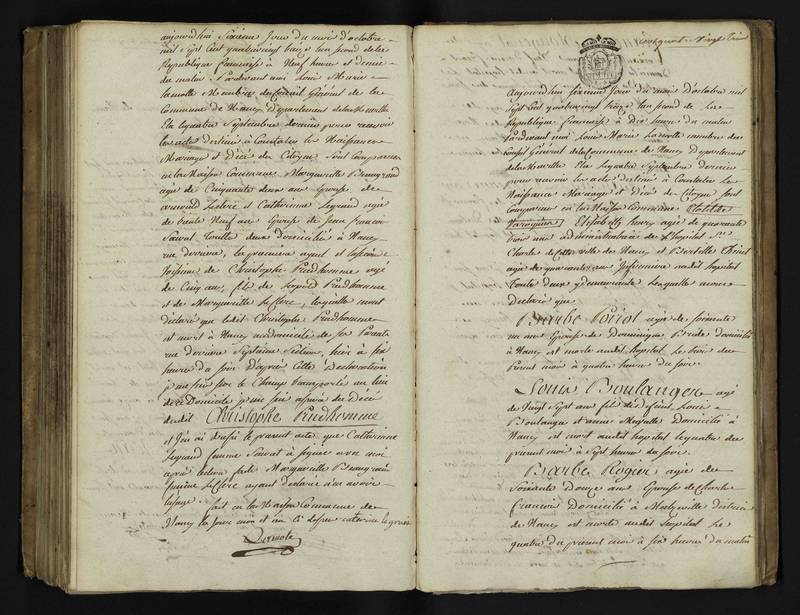 aujourdhui sixieme jour du mois d'octobre
mil sept cent quatrevingt treize l'an second de la
Republique francaise à neuf heures et demie
du matin. Pardevant moi Louis Marie
Membre du Conseil Général de la
Commune de Nancy Departement de la Meurthe
Elu Septembre dernier pour recevoir
les actes destinés à Constater les Naissances
Mariages et Décès des Citoyens sont comparues
en la Maison Commune Marguerite
agée de Cinquante deux ans Epouse de
Leclerc et Catherine Legrand agée
de trente Neuf ans Epouse de Jean francois
Sauret toutte deux domiciliés à Nancy
rue derriere, la premiere ayeul et la seconde
voisine de Christophe Prudhomme agé
de Cinq ans, fils de Leopold Prudhomme
et de Marguerite Leclerc, lesquelles mont
déclaré que ledit Christophe Prudhomme
est mort à Nancy au domicile de ses Parents
rue derriere Septieme Section, hier à six
heures du soir D'après cette Déclaration
je me suis sur le Champ transporté au lieu
de ce Domicile je me suis assuré du Décès
dudit Christophe Prudhomme
et j'en ai dressé le present acte que Catherine
Legrand femme Sauret a signée avec moi
après lecture faite Marguerite
Leclerc ayant déclaré n'en avoir
l'usage. fait en la Maison Commune de
Nancy les jour mois et an ci dessus
aujourdhui sixieme jour du mois d'octobre mil
sept cent quatrevingt treize l'an second de la
Republique francaise à dix heures du matin
Pardevant moi Louis Marie membre du
Conseil Général de la Commune de Nancy Departement
de la Meurthe Elu Septembre dernier
pour recevoir les actes destinés à Constater les
Naissances Mariages et Décès des Citoyens sont
comparues en la Maison Commune
Elisabeth henry agée de quarante
trois ans administratrice de l'hopital St
Charles de cette ville de Nancy et
agée de quarante ans Infirmiere audit hopital
toutte deux y demeurante Lesquelles mont
Declaré que
Barbe Poirot agée de soixante
un ans Epouse de Dominique domicilié
à Nancy est morte audit hopital le trois du
Present mois à quatre heures du soir.
Louis Boulanger agé
de Vingt Sept ans fils de defunt Louis
Boulanger et Domicilié à
Nancy est mort audit hopital le quatre du
present mois à Sept heures du soir.
Barbe Rogier agée de
Soixante Douze ans Epouse de Charles
francois Domicilié à district
de Nancy est morte audit hopital Le
quatre du present mois à six heures du matin